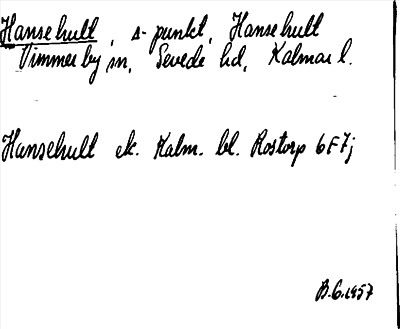 Hansehult, s-punkt, Hansehult
Vimmerby sn, Sevede hd, Kalmar l.
Hansehult ek. Kalm. bl. Rostorp 6F7j
B.G.1957